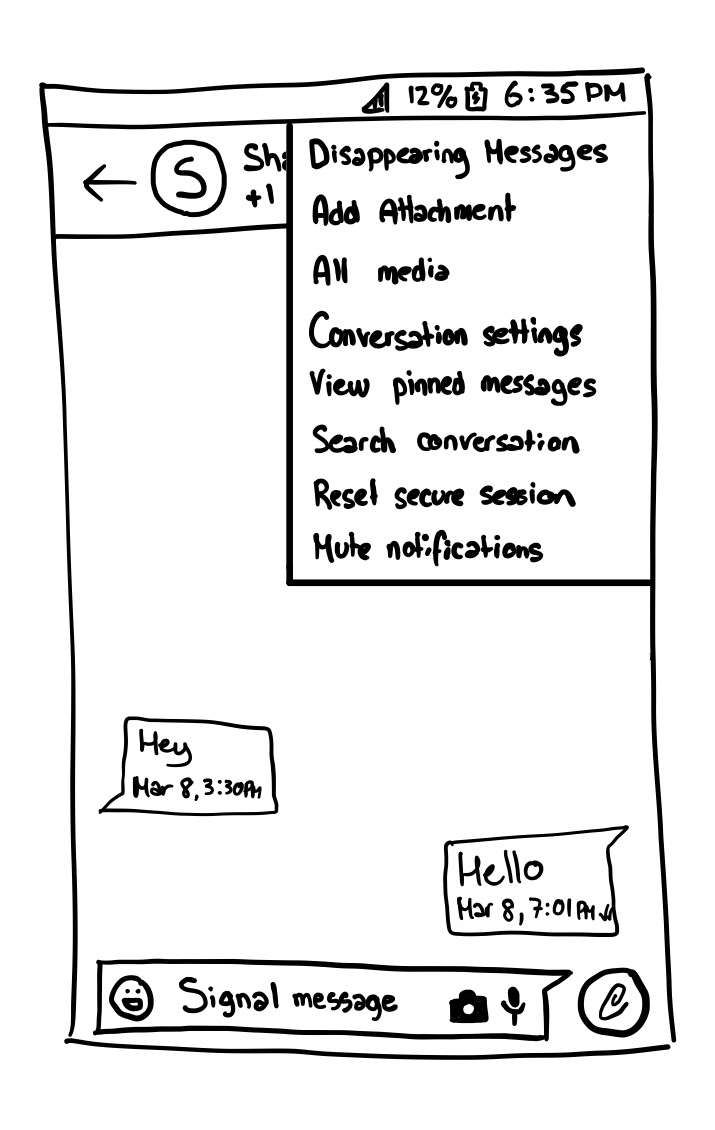 12% 6:35 PM
S
Sha
+1
Disappearing Messages
Add Attachment
All media
Conversation settings
View pinned messages
Search conversation
Reset secure session
Mute notifications
Hey
Mar 8, 3:30PM
Hello
Mar 8, 7:01 PM
Signal message